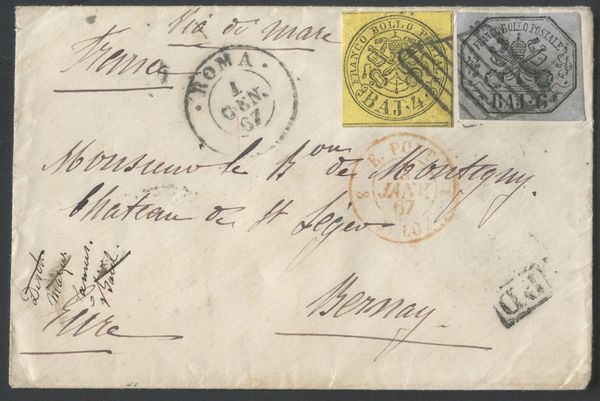 Via di mare
France
ROMA
1
GEN.
67
FRANCO BOLLO POSTALE
BAJ. 4
FRANCO BOLLO POSTALE
BAJ. 6
E. PONT.
JANV.
67
Monsieur le Bon de Montigny
Chateau de St Léger
Bernay
Eure
P.D.